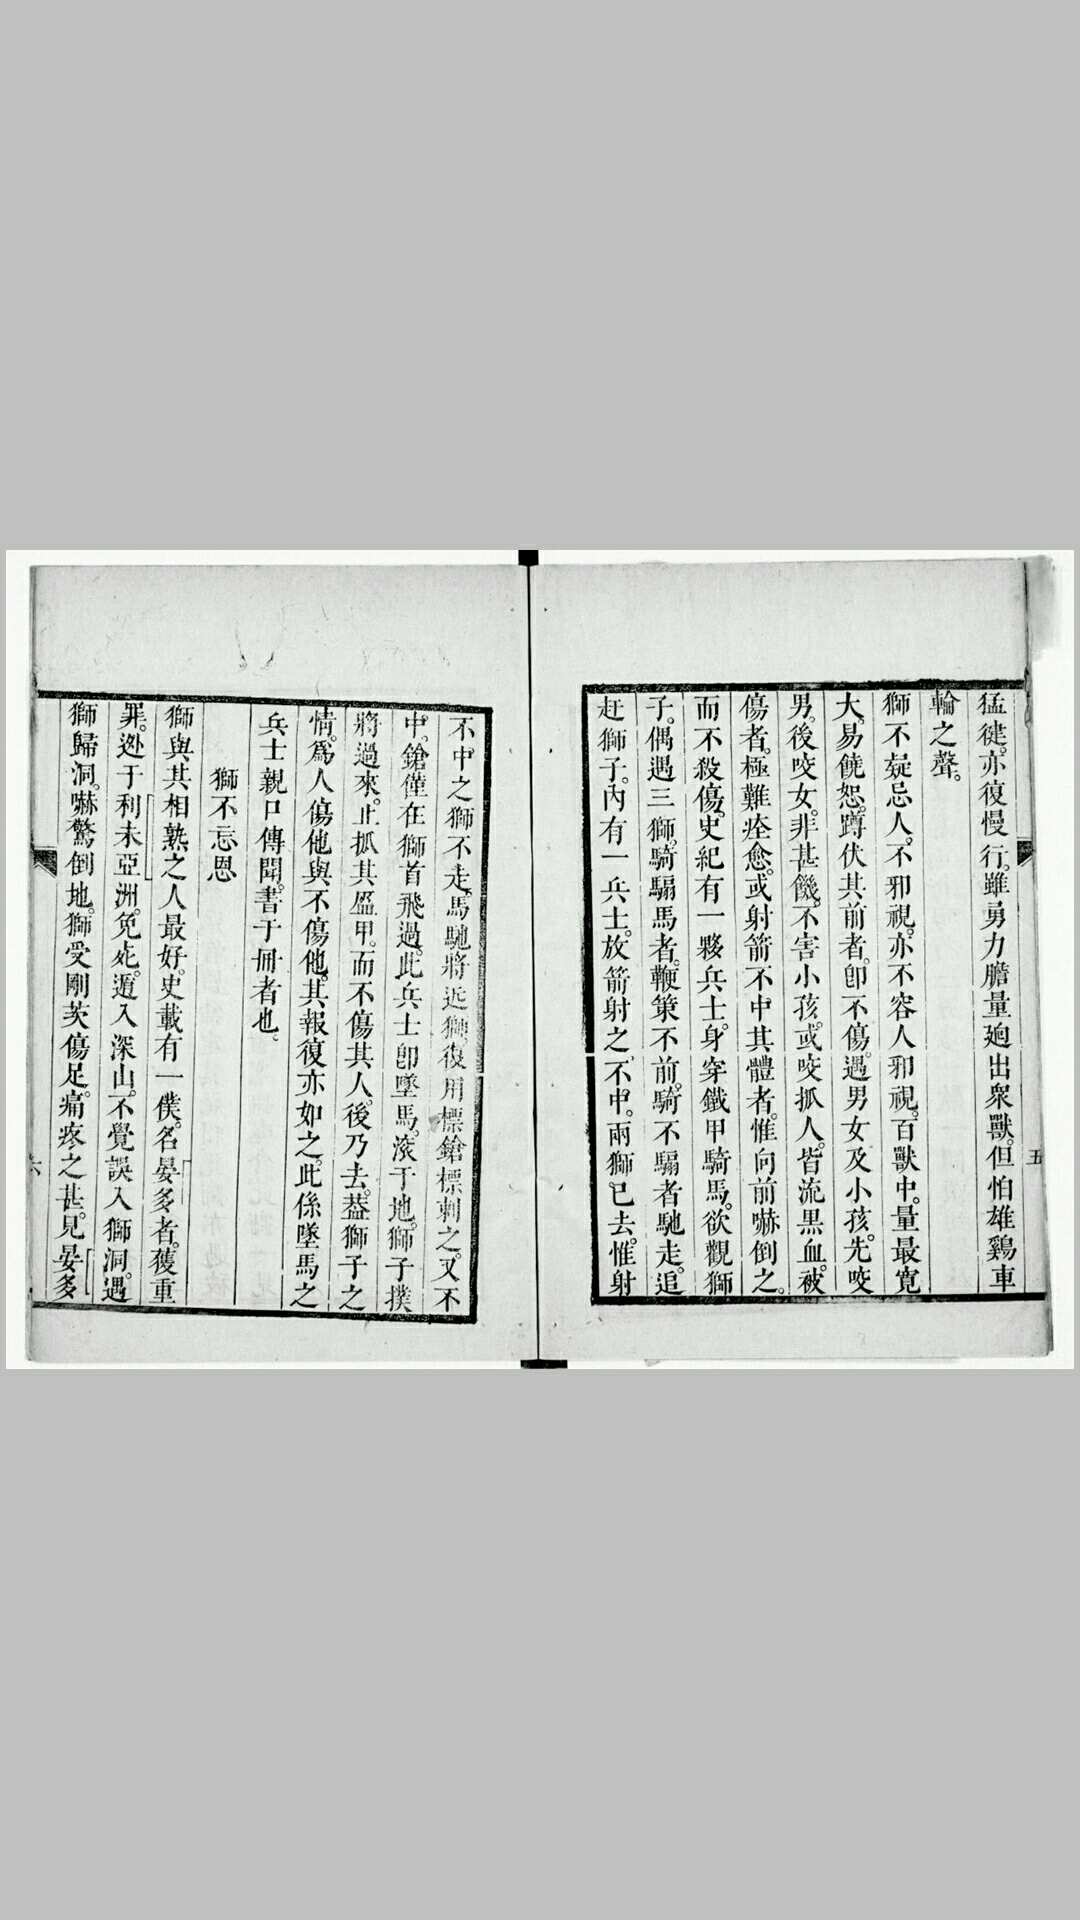 猛徤。亦復慢行。雖勇力膽量迥出衆獸。但怕雄鷄車
輪之聲。
獅不疑忌人。不邪視。亦不容人邪視。百獸中。量最寛
大。易饒恕。蹲伏其前者。卽不傷。遇男女及小孩。先咬
男。後咬女。非甚饑。不害小孩。或咬抓人。皆流黒血。被
傷者。極難痊愈。或射箭不中其體者。惟向前嚇倒之。
而不殺傷。史紀有一夥兵士。身穿鐵甲騎馬。欲觀獅
子。偶遇三獅。騎騸馬者。鞭策不前。騎不騸者馳走。追
赶獅子。內有一兵士。放箭射之、不中。兩獅已去。惟射
五
不中之獅不走。馬馳將近獅。復用標鎗標刺之。又不
中。鎗僅在獅首飛過。此兵士卽墜馬。滚于地。獅子撲
將過來。止抓其盔甲。而不傷其人。後乃去。葢獅子之
情。爲人傷他與不傷他。其報復亦如之。此係墜馬之
兵士親口傳聞。書于冊者也。
獅不忘恩
獅與其相熟之人最好。史載有一僕。名晏多者。獲重
罪。迯于利未亞洲。免死。遁入深山。不覺誤入獅洞。遇
獅歸洞。嚇驚倒地。獅受剛茨傷足。痛疼之甚。見晏多
六